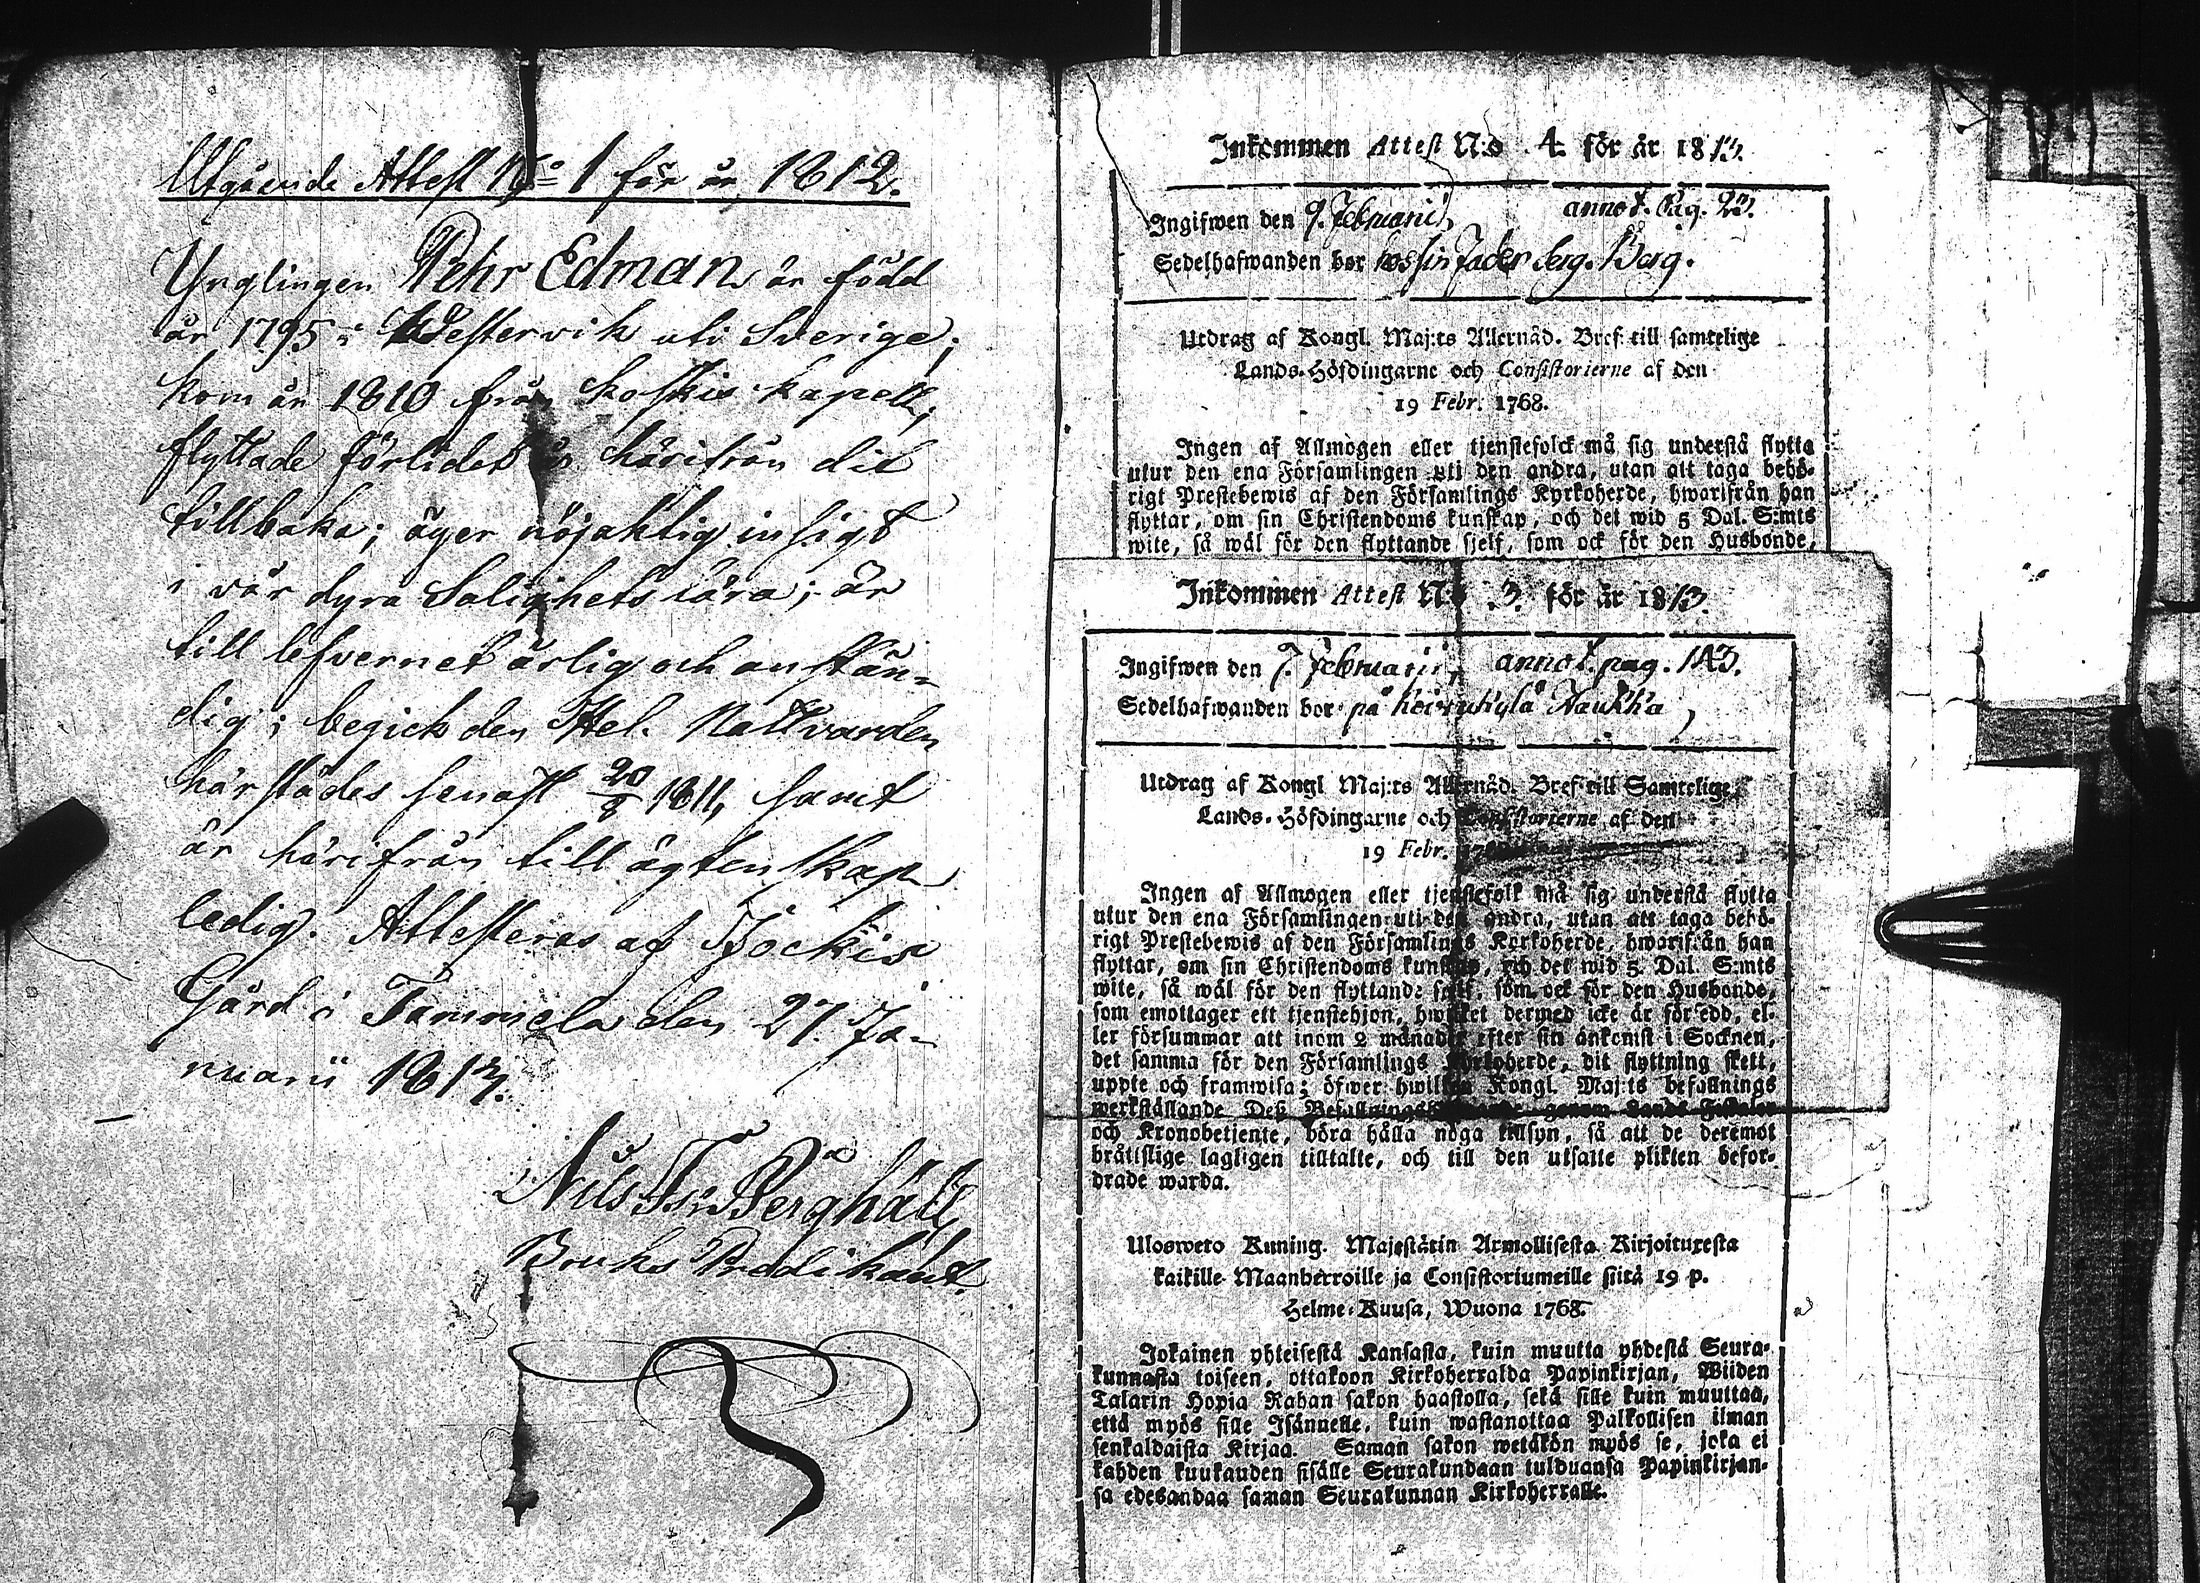 Utgående Attest No 1 för år 1812.
Ynglingen Pehr Edman är född
år 1795 i Westervik uti Sverige;
kom år 1810 från Koskis kapell;
flyttade förlidet år härifrån dit
tillbaka; äger nöjaktig insigt
i vår dyra Salighets lära; är
till lefvernet ärlig och anstän-
dig; begick den Hel. Nattvarden
härstädes senast 20/8 1811, samt
är härifrån till ägtenskap
ledig. Attesteras af Jockis
Gård i Tammela den 27. Ja-
nuarii 1813.
Nils Berghäll
Bruks Predikant.
Inkommen Attest N:o 4. för år 1813.
Ingifwen den 9. Februarii, annot. Pag. 23.
Sedelhafwanden bor hos sin Fader Serg. Berg.
Utdrag af Kongl. Maj:ts Allernåd. Bref till samtelige
Lands-Höfdingarne och Consistorierne af den
19 Febr. 1768.
Ingen af Allmogen eller tjenstefolck må sig understå flytta
utur den ena Församlingen uti den andra, utan att taga behö-
rigt Prestebewis af den Församlings Kyrkoherde, hwarifrån han
flyttar, om sin Christendoms kunskap, och det wid 5 Dal. S:mts
wite, så wäl för den flyttande sjelf, som ock för den Husbonde,
Inkommen Attest N:o 3. för år 1813.
Ingifwen den 7. Februarii, annot. pag. 143.
Sedelhafwanden bor på Koirukylä Naukka,
Utdrag af Kongl Maj:ts Allernåd. Bref till Samtelige
Lands-Höfdingarne och Consistorierne af den
19 Febr. 1768
Ingen af Allmogen eller tjenstefolk må sig understå flytta
utur den ena Församlingen uti den andra, utan att taga behö-
rigt Prestebewis af den Församlings Kyrkoherde, hwarifrån han
flyttar, om sin Christendoms kunskap, och det wid 5. Dal. S:mts
wite, så wäl för den flyttande sjelf, som ock för den Husbonde,
som emottager ett tjenstehjon, hwilket dermed icke är försedd, el-
ler försummar att inom 2 månader efter sin ankomst i Socknen,
det samma för den Församlings Kyrkoherde, dit flyttning skett,
uppte och framwisa; öfwer hwilken Kongl. Maj:ts befallnings
werkställande Deß Befallningshafwande genom Lands Fiskaler
och Kronobetjente, böra hålla noga tillsyn, så att de deremot
brättslige lagligen tilltalte, och till den utsatte plikten befor-
drade warda.
Ulosweto Kuning. Majestätin Armollisesta Kirjoituxesta
kaikille Maanherroille ja Consistoriumeille siitä 19 p.
Helme-Kuusa, Wuona 1768.
Jokainen yhteisestä Kansasta, kuin muutta yhdestä Seura-
kunnasta toiseen, ottakoon Kirkoherralda Papinkirjan, Wiiden
Talarin Hopia Rahan sakon haastolla, sekä sille kuin muuttaa,
että myös sille Isännelle, kuin wastanottaa Palkollisen ilman
senkaldaista Kirjaa. Saman sakon wetäkön myös se, joka ei
kahden kuukauden sisälle Seurakundaan tulduansa Papinkirjan-
sa edesandaa saman Seurakunnan Kirkoherralle.